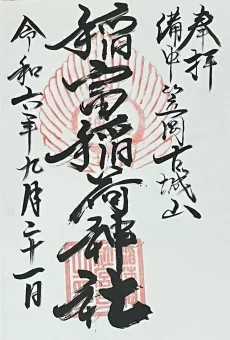 奉拝
備中笠岡古城山
稲富稲荷神社
令和六年九月二十一日